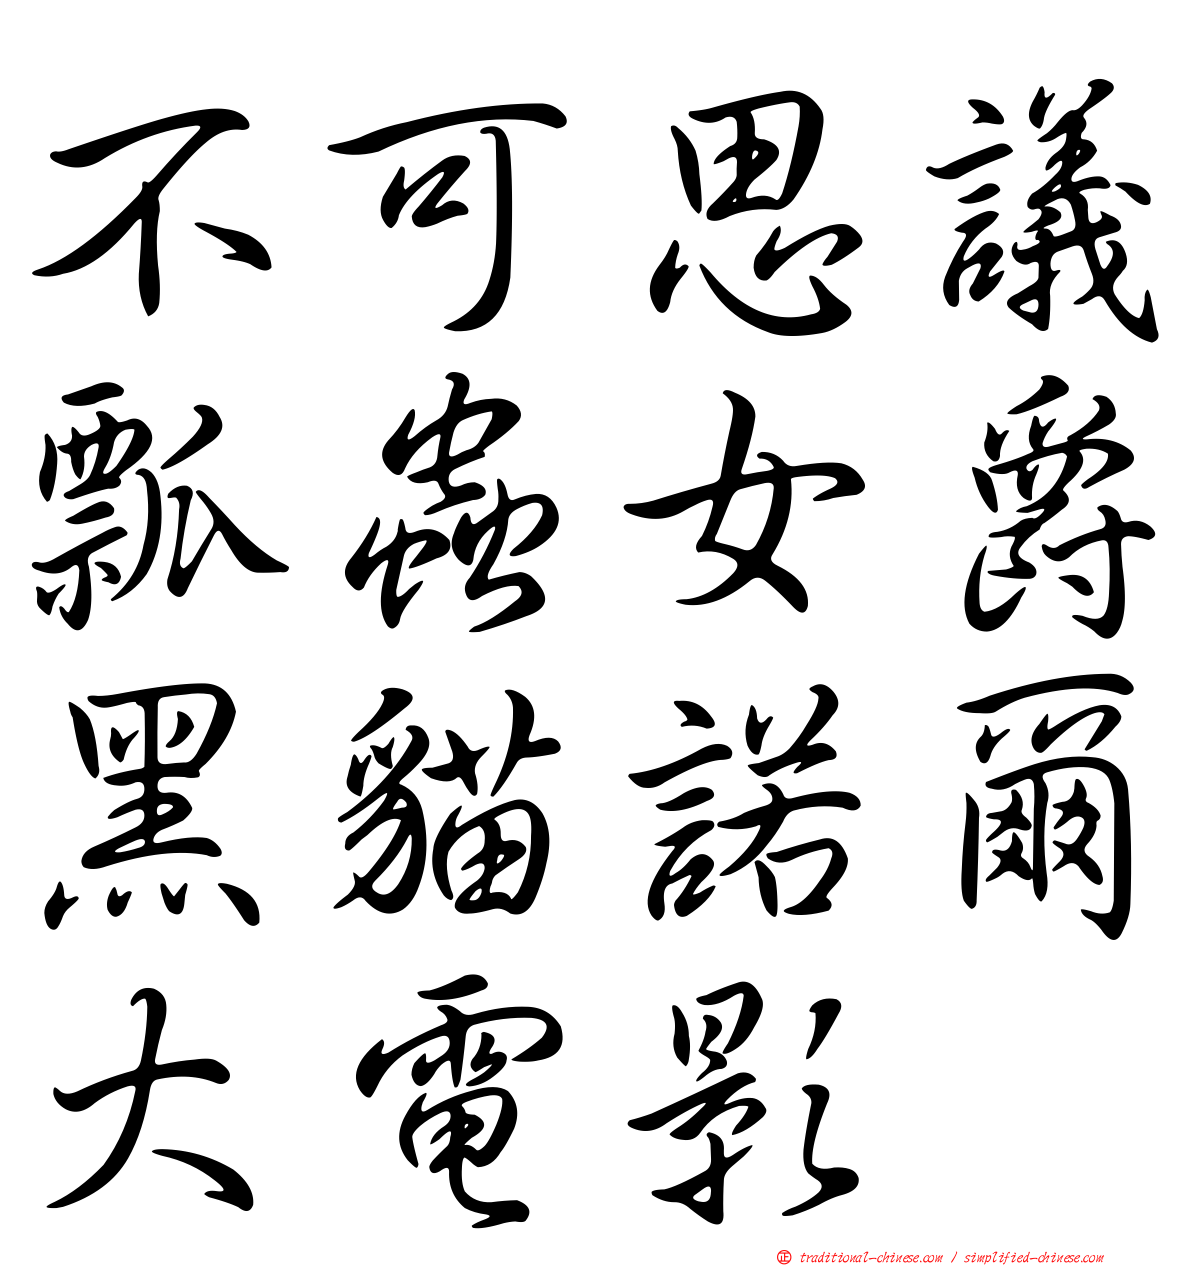 不可思議
瓢蟲女爵
黑貓諾爾
大電影
正 traditional-chinese.com / simplified-chinese.com